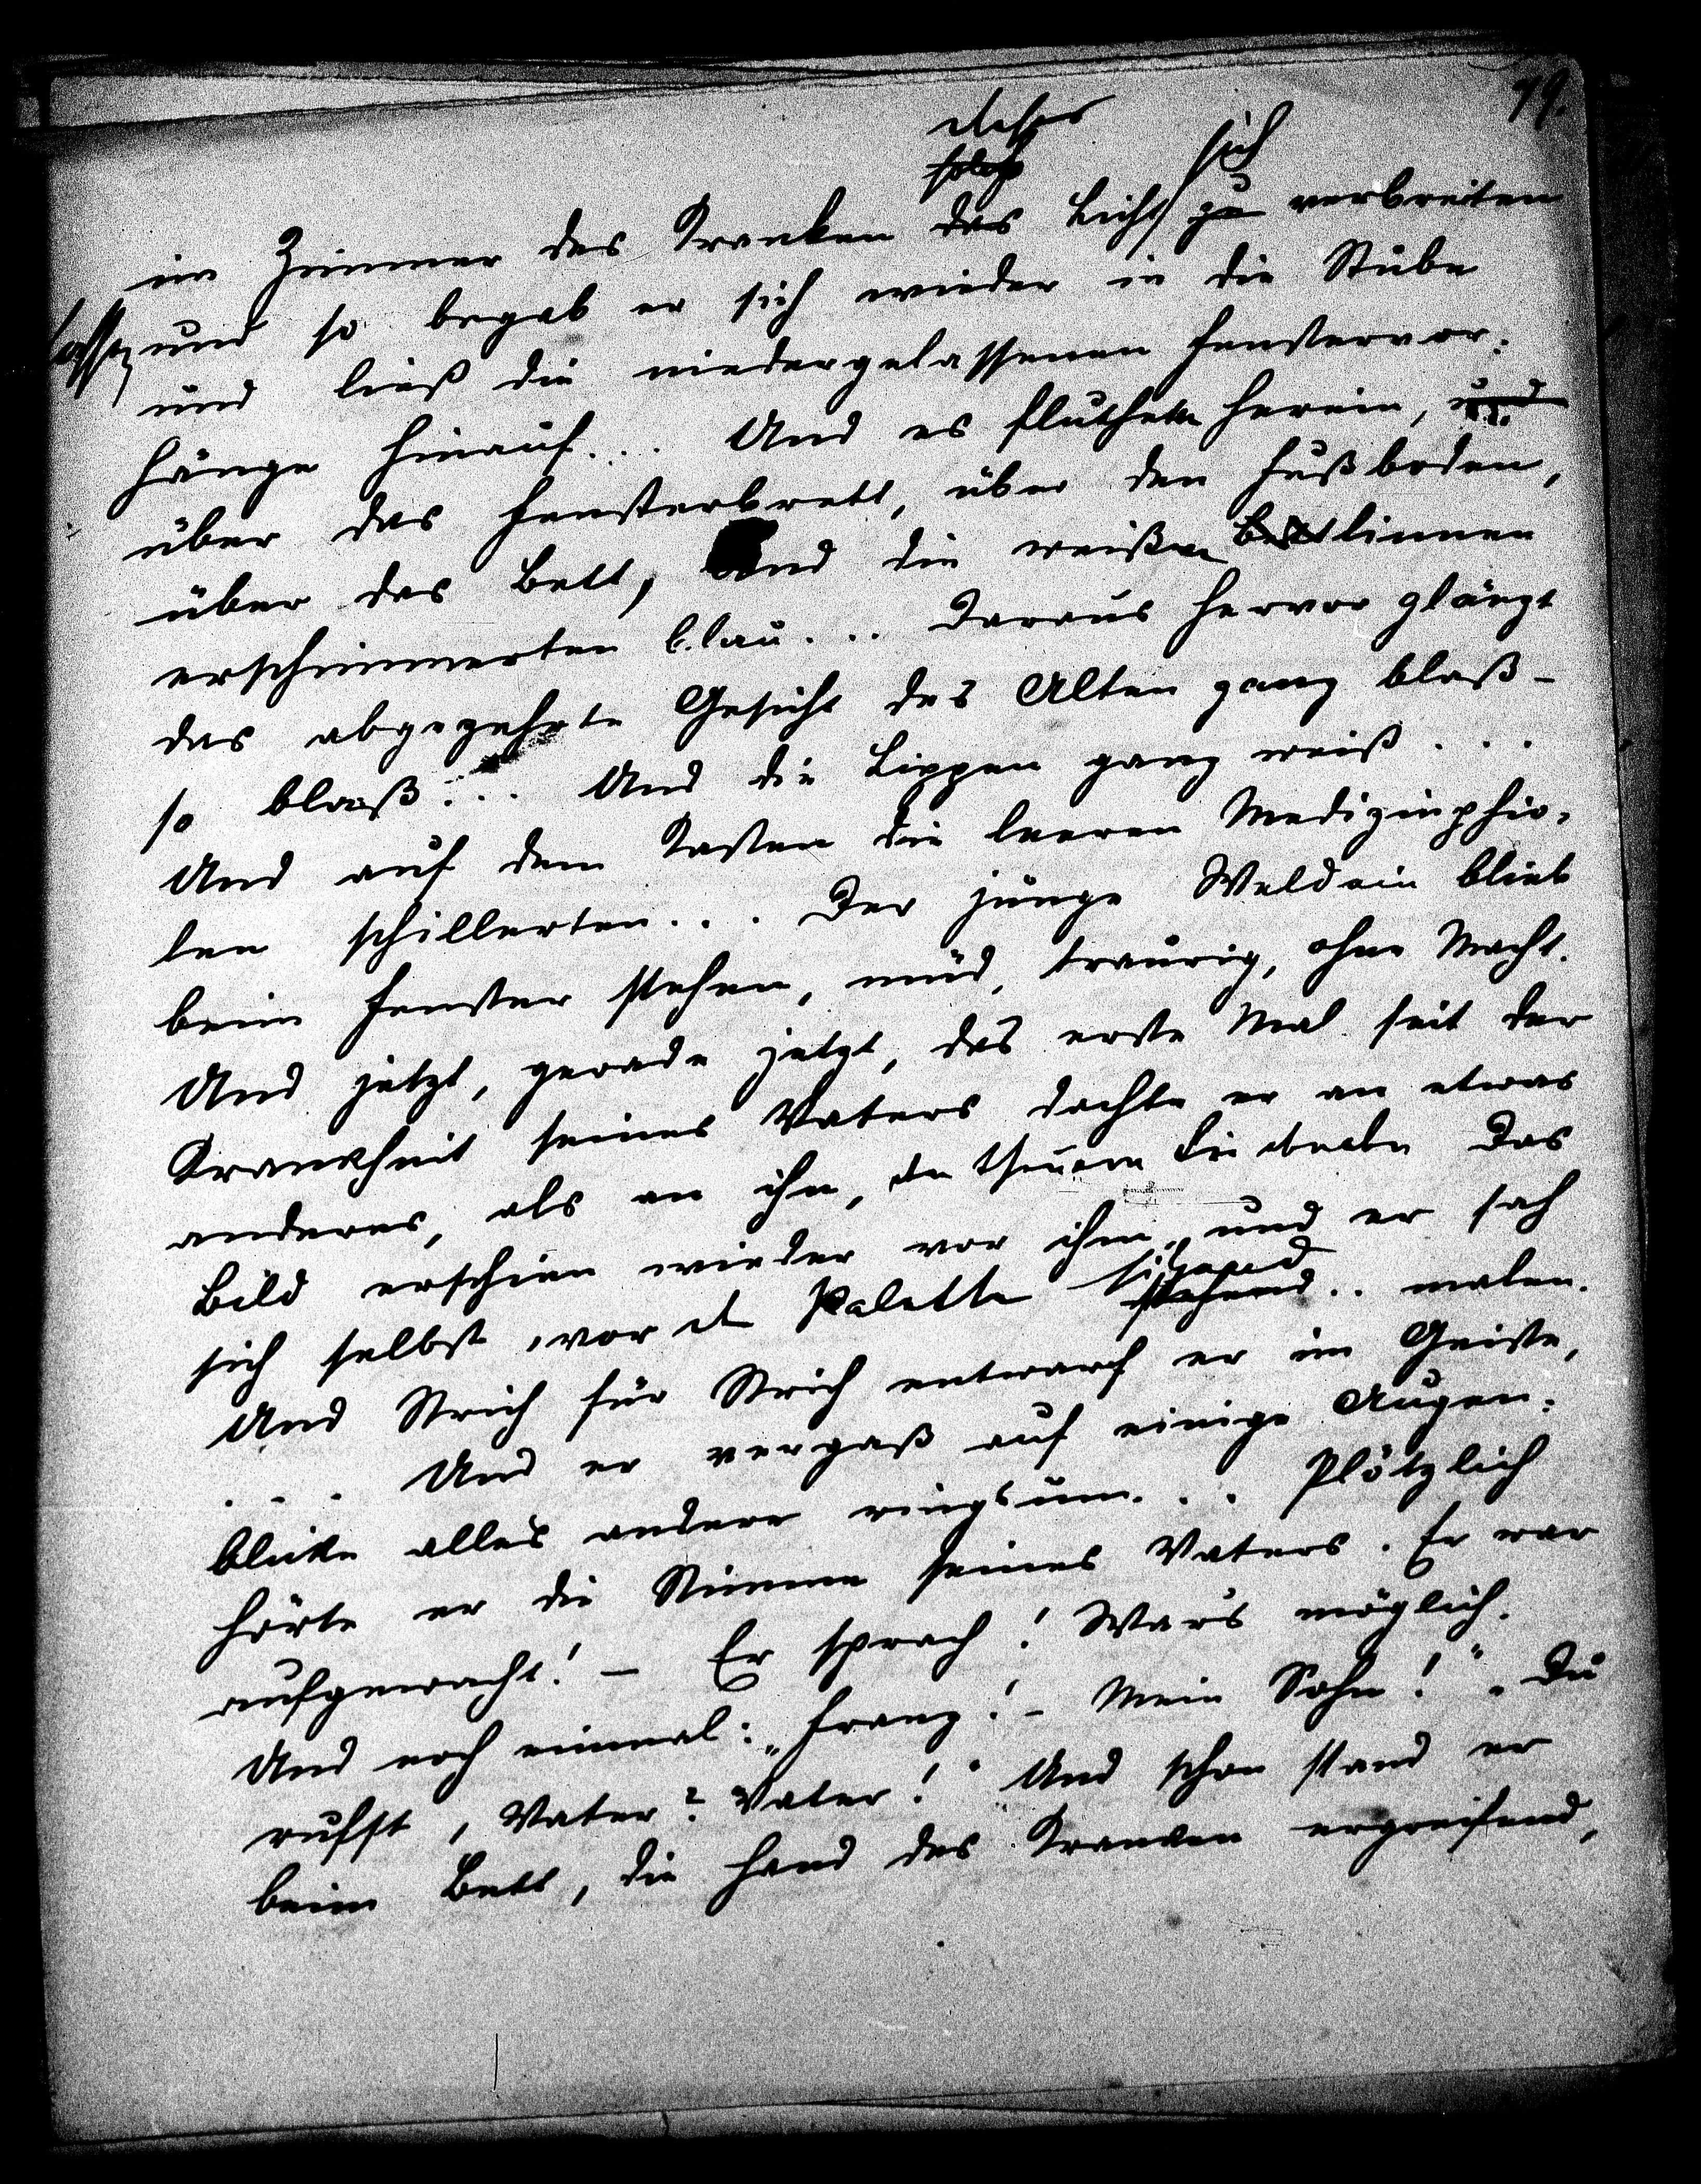 79.
dieses
solch
sich
im Zimmer des Kranken das Licht zu verbreiten
lassen
und so begab er sich wieder in die Stube
und ließ die niedergelassenen Fenstervor-
hänge hinauf... Und es fluthete herein, und
über das Fensterbrett, über den Fußboden,
über das Bett, und die weißen Bettlinnen
erschimmerten blau... Daraus hervor glänzt
das abgezehrte Gesicht des Alten ganz blaß –
so blaß... Und die Lippen ganz weiß...
Und auf dem Kasten die leeren Medizinphio-
len schillerten... Der junge Weldein blieb
beim Fenster stehen, müd, traurig, ohne Macht.
Und jetzt, gerade jetzt, das erste Mal seit der
Krankheit seines Vaters dachte er an etwas
anderes, als an ihn, den theuern Das
Bild erschien wieder vor ihm, und er sah
sitzend
sich selbst, vor d Palette stehend.. malen.
Und Strich für Strich entwarf er im Geiste,
.... Und er vergaß auf einige Augen-
blicke alles andere ringsum... Plötzlich
hörte er die Stimme seines Vaters. Er war
aufgewacht! – Er sprach! War's möglich.
Und noch einmal: „Franz! – Mein Sohn!" „Du
rufst, Vater? Vater!" Und schon stand er
beim Bett, die Hand des Kranken ergreifend,